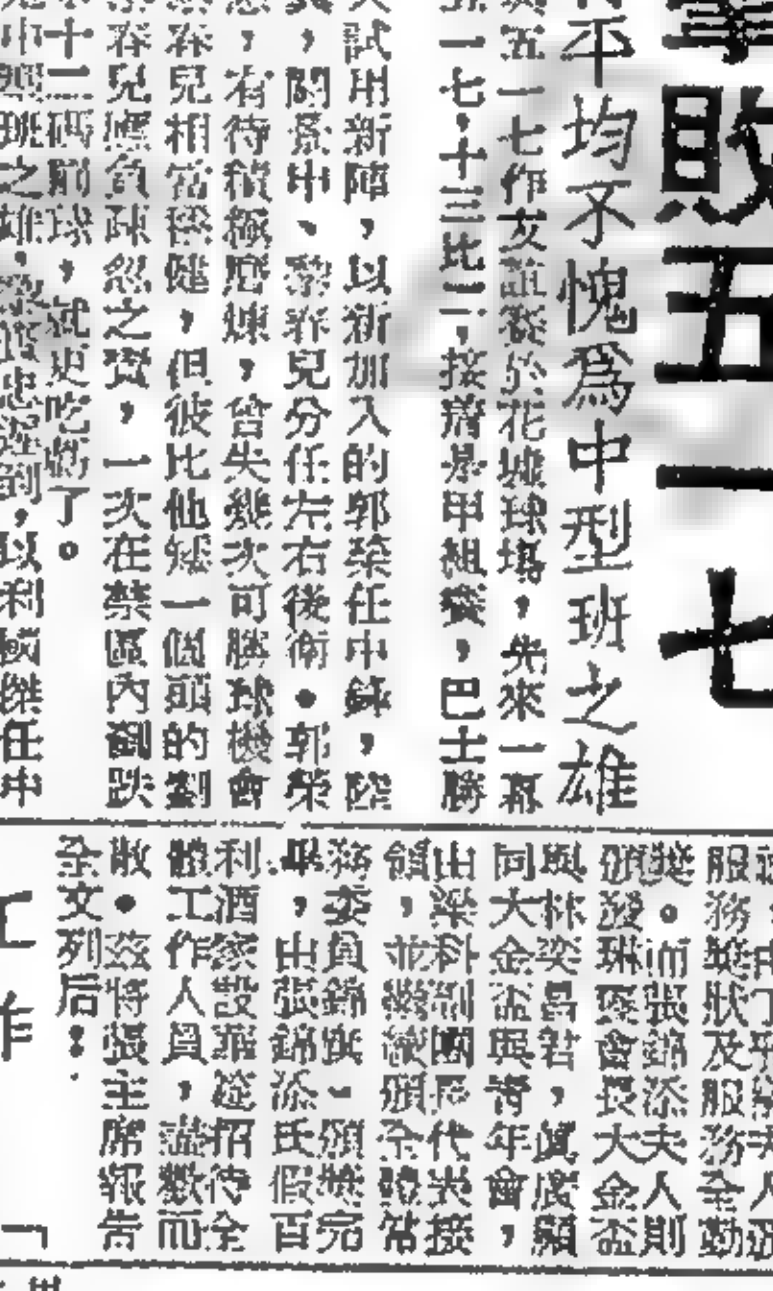 敗五一七
不均不愧為中型班之雄
五一七作友誼賽於花墟球場，先來一幕
一七，十三比二，接着是甲組賽，巴士勝
試用新陣，以新加入的郭榮任中鋒，
，關景中、黎春兒分任左右後衛。郭榮
，有待積極磨煉，曾失幾次可勝球機會
春兒相當穩健，但彼比他矮一個頭的劉
春兒應負疎忽之責，一次在禁區內劉跌
十二碼罰球，就更吃虧了。
中型班之雄，遲到，以利國傑任中
服務獎狀及服務全勤
獎。而張錦添夫人則
頒發琳瑯會長大金盃
與林奕昌君，
同大金盃與青年會，
由梁科副團長代表接
領，並繼續頒全體常
務委員錦旗。頒獎完
畢，由張錦添氏假百
利酒家設筵招待全
體工作人員，盡歡而
散。茲將張主席報告
全文列后：